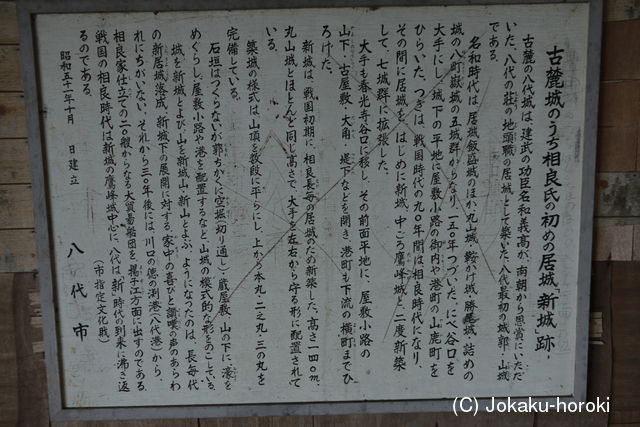 古麓城のうち相良氏の初めの居城「新城」跡
古麓の八代城は、建武の功臣名和義高が、南朝から恩賞にいただ
いた、八代の荘の地頭職の居城として築いた、八代最初の城郭・山城
である。
名和時代は、居城飯盛城のほか丸山城・鞍かけ城・勝尾城・詰めの
城の八町嶽城の五城群からなり、一五〇年つづいた。にべ谷口を
大手にし、城下の平地に屋敷小路の御内や港町の山鹿町を
ひらいた。つぎは、戦国時代の九〇年間は相良時代になり、
その間に居城を、はじめに新城、中ごろ鷹峰城と、二度新築
して、七城群に拡張した。
大手も春光寺谷口に移し、その前面平地に、屋敷小路の
山下・古屋敷・大角・堤下などを開き、港町も下流の横町までひ
ろげた。
新城は、戦国初期に、相良長毎の居城のため新築した。高さ一四〇m、
丸山城とほとんど同じ高さで、大手を左右から守る形に配置されて
いる。
築城の様式は山頂を数段に平らにし、上から本丸・二之丸・三の丸を
完備している。
石垣はつくらないが郭ちかくに空掘(切り通し)・蔵屋敷、山の下に、濠を
めぐらし、屋敷小路や港を配置するなど、山城の模式的な形をのこしている。
城を新城とよび、山を新城山・新山とよぶ、ようになったのは、長毎代
の新居城落成、新城下の展開に対する、家中の喜びと讃嘆の声のあらわ
れにちがいない。それから三〇年後には、川口の徳の渕港(八代港)から、
相良家仕立ての二〇艘からなる大貿易船団を、揚子江方面に出すのである。
戦国の相良時代は新城の鷹峰城中心に、八代は、新時代の到来に沸き返
るのである。
(市指定文化財)
昭和五十一年十月　日建立
八代市
(C) Jokaku-horoki